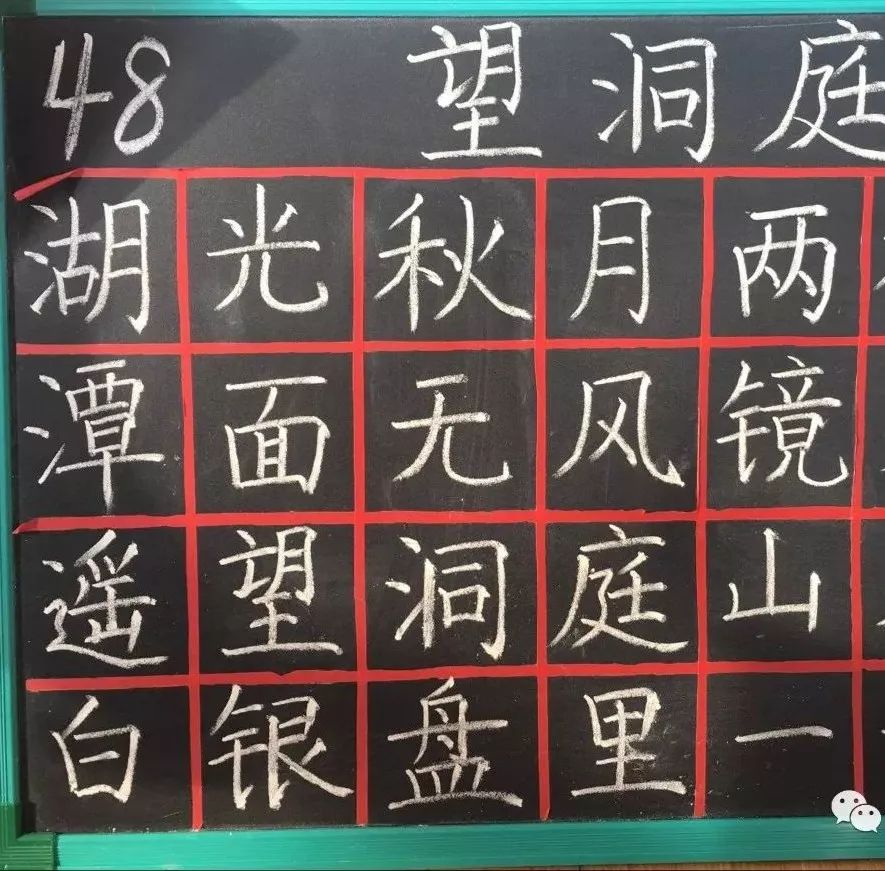 48 望洞庭
湖光秋月两
潭面无风镜
遥望洞庭山
白银盘里一